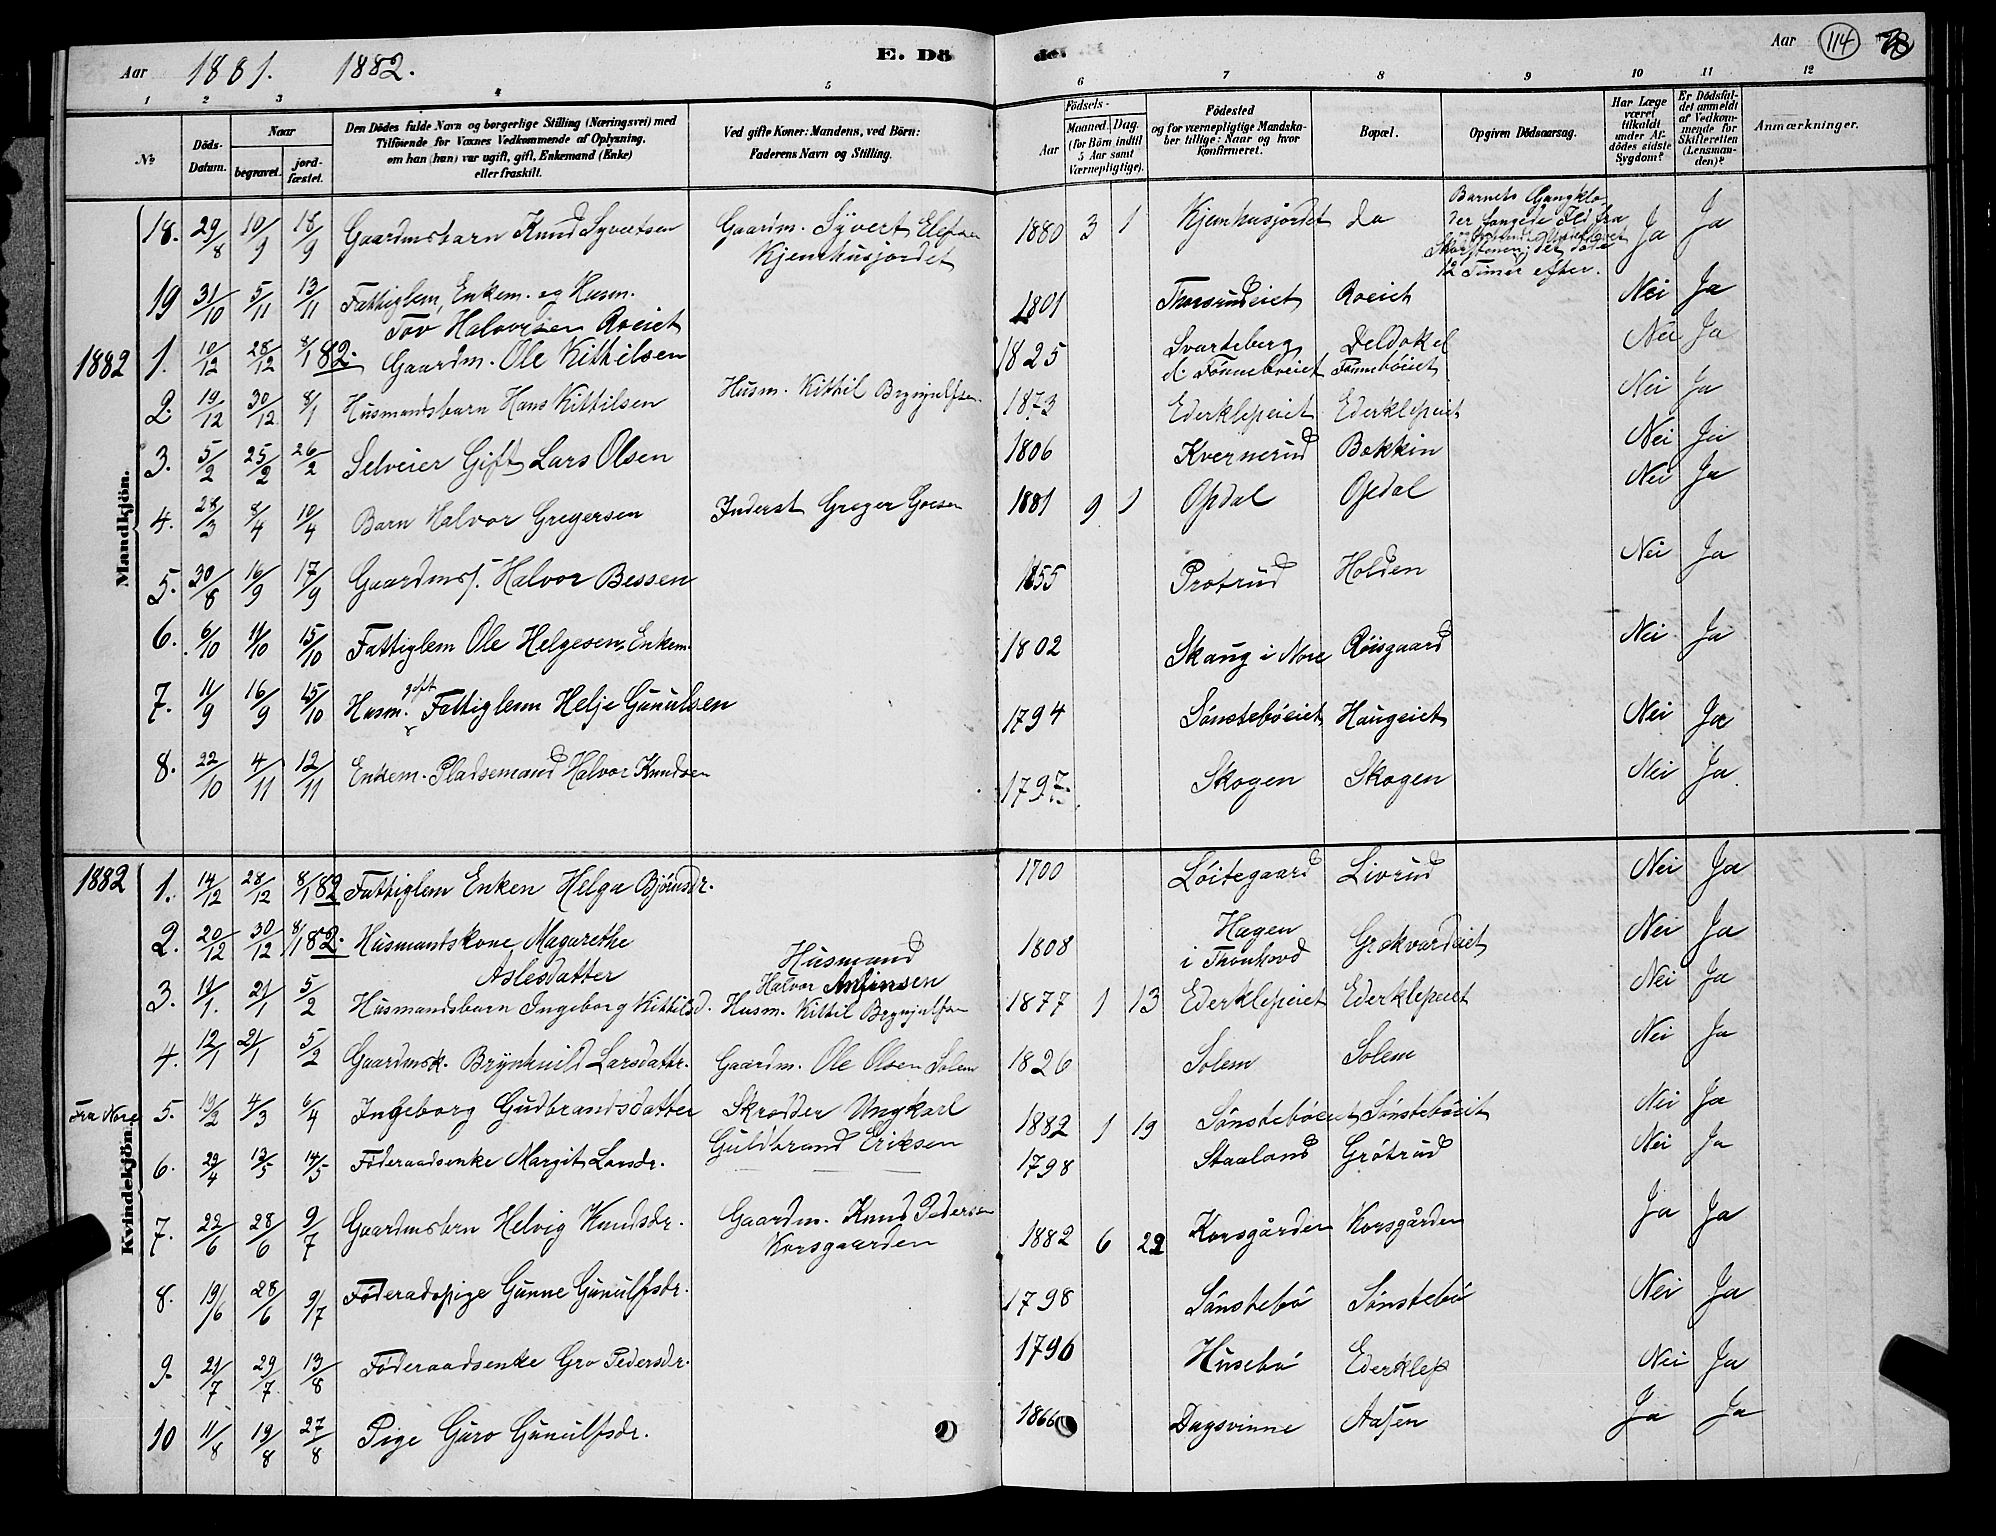 Aar 1881. 1882. E. Dö de. Aar 114
1 2 3 4 5 6 7 8 9 10 11 12
No
Döds-Datum.
Naar begravet. jordfæstet.
Den Dödes fulde Navn og borgerlige Stilling (Næringsvei) med Tilföiende for Voxnes Vedkommende af Oplysning, om han (hun) var ugift, gift, Enkemand (Enke) eller fraskilt.
Ved gifte Koner: Mandens, ved Börn: Faderens Navn og Stilling.
Födsels-
Aar Maaned. Dag. (for Börn indtil 5 Aar samt Værnepligtige).
Födested og for værnepligtige Mandskaber tillige: Naar og hvor konfirmeret.
Bopæl.
Opgiven Dödsaarsag.
Har Læge været tilkaldt under Afdödes sidste Sygdom?
Er Dödsfaldet anmeldt af Vedkommende for Skifteretten (Lensmanden)?
Anmærkninger.
Mandkjön.
18. 29/8 10/9 18/9 Gaardmsbarn Knud Syvertsen Gaardm. Syvert Elefsen Kjemhusjordet 1880 3 1 Kjemhusjordet do Barnets Gangklæder fangede Ild fra Skorstenen; det døde 12 Timer efter. Ja Ja
19 31/10 5/11 13/11 Fattiglem, Enkem. og Husm. Tov Halvorsen Roeiet 1801 Thorsrudeiet Roeiet Nei Ja
1882 1. 10/12 28/12 8/1 82. Gaardm. Ole Kittilsen 1825 Svarteberg el. Tønneboeiet Deldokel Tønnebøeiet Nei Ja
2. 19/12 30/12 8/1 Husmandsbarn Hans Kittilsen Husm. Kittil Brynjulfsen 1873 Ederklepeiet Ederklepeiet Nei Ja
3. 5/2 25/2 26/2 Selveier Gift Lars Olsen 1806 Kvernerud Bakkin Nei Ja
4. 28/3 8/4 10/4 Barn Halvor Gregersen Inderst Greger Goesen 1881 9 1 Opdal Opdal Nei Ja
5. 30/8 16/9 17/9 Gaardmss. Halvor Bessen 1855 Protrud Holden Nei Ja
6. 6/10 11/10 15/10 Fattiglem Ole Helgesen, Enkem. 1802 Skaug i Nore Röisgaard Nei Ja
7. 11/9 16/9 15/10 Husm. gift Fattiglem Helje Gunulsen 1794 Sønstebøeiet Haugeiet Nei Ja
8. 22/10 4/11 12/11 Enkem. Pladsemand Halvor Knudsen 1797 Skogen Skogen Nei Ja
Kvindekjön.
1882 1. 14/12 28/12 8/1 82 Fattiglem Enken Helga Bjørnsdr. 1700 Løitegaard Livrud Nei Ja
2. 20/12 30/12 8/1 82. Husmandskone Magarethe Aslesdatter Husmand Halvor Anfinsen 1808 Hagen i Thonhovd Grøkvardeiet Nei Ja
3. 11/1. 21/1 5/2 Husmandsbarn Ingeborg Kittilsd. Husm. Kittil Brynjulfsen 1877 1 13 Ederklepeiet Ederklepeiet Nei Ja
4. 12/1 21/1 5/2 Gaardmsk. Brynhuild Larsdattr. Gaardm. Ole Olsen Solem 1826 Solem Solem Nei Ja
Fra Nore 5. 19/2 4/3 6/4 Ingeborg Gudbrandsdatter Skrædder Ungkarl Guldbrand Eriksen 1882 1 19 Sønstebøeiet Sønstebøeit Nei Ja
6. 29/4 13/5 14/5 Føderaadsenke Margit Larsdr. 1798 Staaland Grøtrud Nei Ja
7. 22/6 28/6 9/7 Gaardmsbrn Helvig Knudsdr. Gaardm. Knud Pedersen Korsgaarden 1882 6 22 Korsgården Korsgården Ja Ja
8. 19/6 28/6 9/7 Føderadspige Gunne Gunulfsdr. 1798 Sønstebø Sønstebø Nei Ja
9. 21/7 29/7 13/8 Føderaadsenke Gro Pedersdr. 1796 Husebø Ederklep Nei Ja
10 11/8 19/8 27/8 Pige Guro Gunulfsdr. 1866 Dagsvinne Aasen Ja Ja